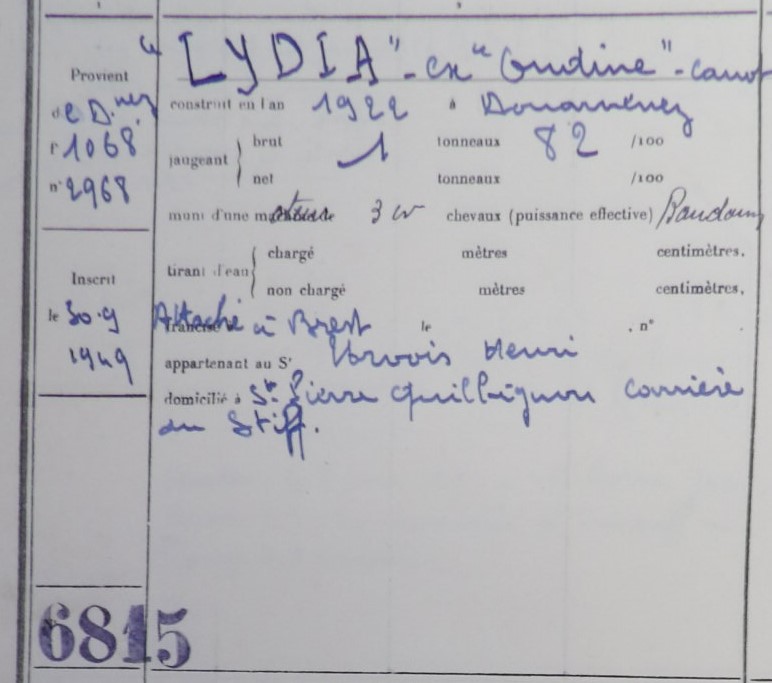 "LYDIA" - ex "Ondine" - canot
Provient
de D.nez
construit en l'an 1922 à Douarnenez
fº 1068
jaugeant { brut 1 tonneaux 82 /100
nº 2968
net tonneaux /100
muni d'une moteur 3 cv chevaux (puissance effective) Baudouin
Inscrit
tirant d'eau { chargé mètres centimètres.
non chargé mètres centimètres,
le 30.9
1949
Attaché à Brest le . nº .
appartenant au Sr Henri
domicilié à St Pierre Quilbignon carrière
du Stiff.
6815